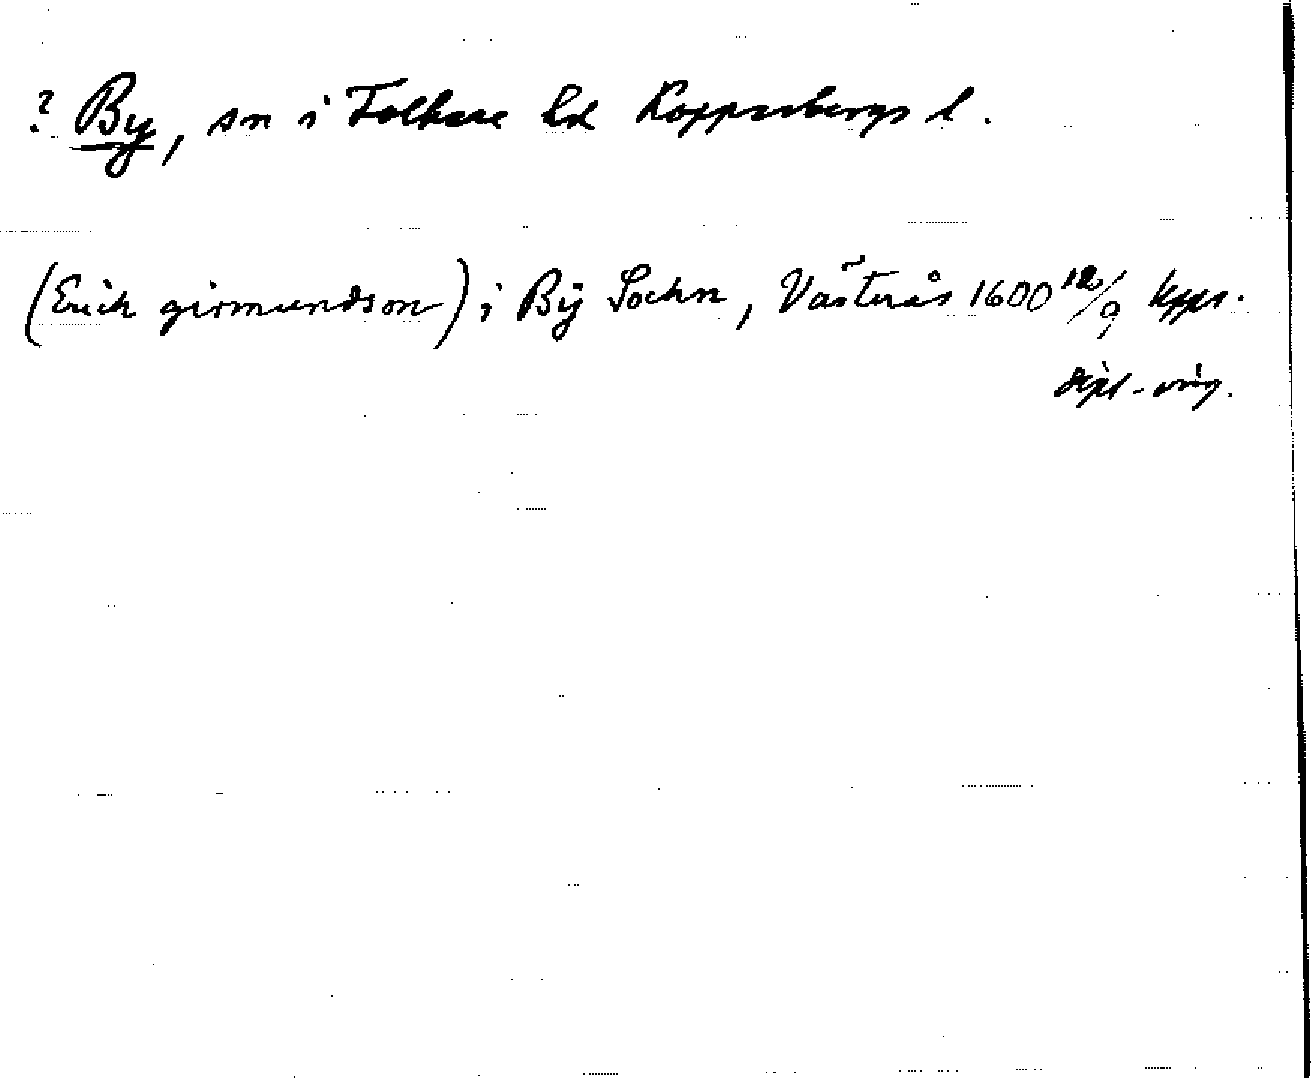 ? By, sn i Folkare hd Kopparbergs l.
(Erich girmundson) i Bÿ Sochn, Västerås 1600 12/9 kpps.
dipl.-vis.